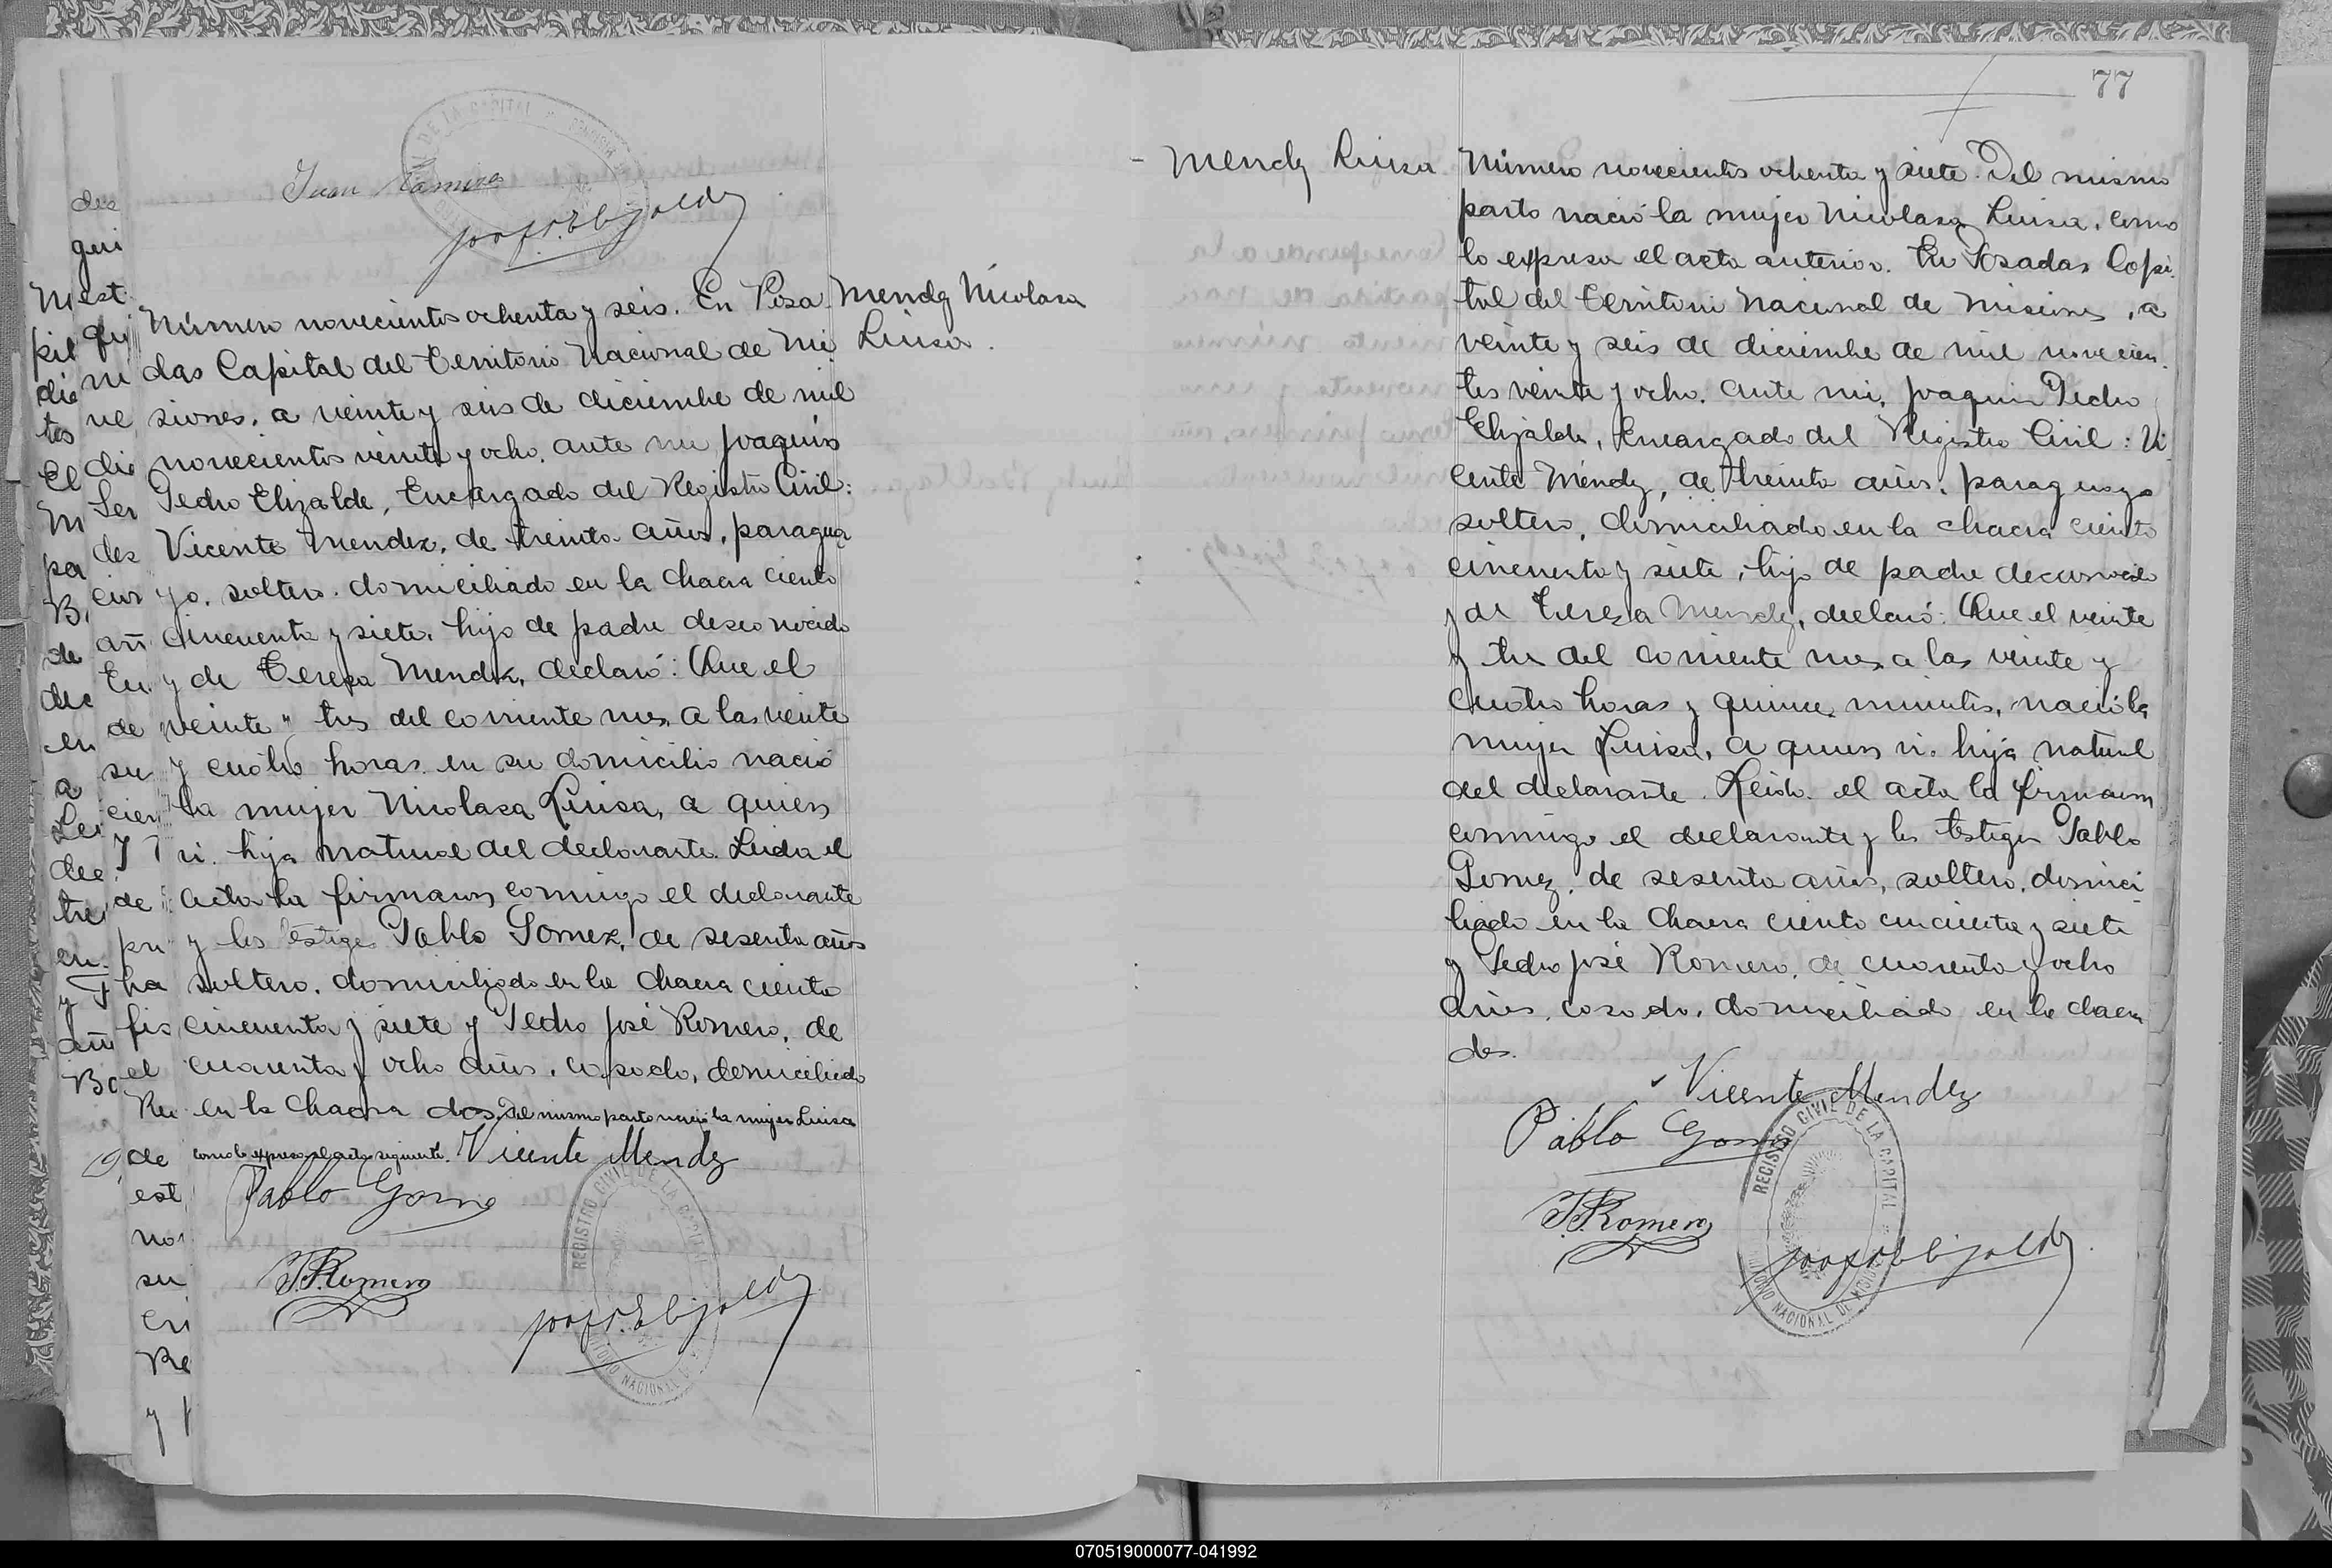 Juan Ramirez
Número novecientos ochenta y seis. En Posa
das Capital del Territorio Nacional de Mi
siones, a veinte y seis de diciembre de mil
novecientos veinte y ocho, ante mi Joaquín
Pedro Elizalde, Encargado del Registro Civil:
Vicente Mendez, de treinta años, paragua
yo, soltero, domiciliado en la chacra ciento
cincuenta y siete, hijo de padre desconocido
y de Teresa Mendez, declaró: Que el
veinte y tres del corriente mes, a las veinte
y cuatro horas en su domicilio nació
la mujer Nicolasa Luisa, a quien
vi. hija natural del declarante. Leida el
acta la firmaron conmigo el declarante
y los testigos Pablo Gomez, de sesenta años
soltero, domiciliado en la chacra ciento
cincuenta y siete y Pedro José Romero, de
cuarenta y ocho años, casado, domiciliado
en la chacra dos. Del mismo parto nació la mujer Luisa
como lo expresa el acta siguiente. Vicente Mendez
Pablo Gomez
P.J.Romero
REGISTRO CIVIL DE LA CAPITAL
Mendez Nicolasa
Luisa.
77
Mendez Luisa
Número novecientos ochenta y siete. Del mismo
parto nació la mujer Nicolasa Luisa, como
lo expresa el acta anterior. En Posadas Capi
tal del Territorio Nacional de Misiones, a
veinte y seis de diciembre de mil novecien
tos veinte y ocho, ante mi, Joaquin Pedro
Elizalde, Encargado del Registro Civil: Vi
cente Méndez, de treinta años, paraguayo
soltero, domiciliado en la chacra ciento
cincuenta y siete, hijo de padre deconocido
y de Teresa Mendez, declaró: Que el veinte
y tres del corriente mes a las veinte y
cuatro horas y quince minutos, nació la
mujer Luisa, a quien vi. hija natural
del declarante. Leida el acta la firmaron
conmigo el declarante y los testigos Pablo
Gomez, de sesenta años, soltero, domici
liado en la chacra ciento cincuenta y siete
y Pedro José Romero, de cuarenta y ocho
años, casado, domiciliado en la chacra
dos.
Vicente Mendez
Pablo Gomez
P.J.Romero
REGISTRO CIVIL DE LA CAPITAL
TERRITORIO NACIONAL DE MISIONES
070519000077-041992